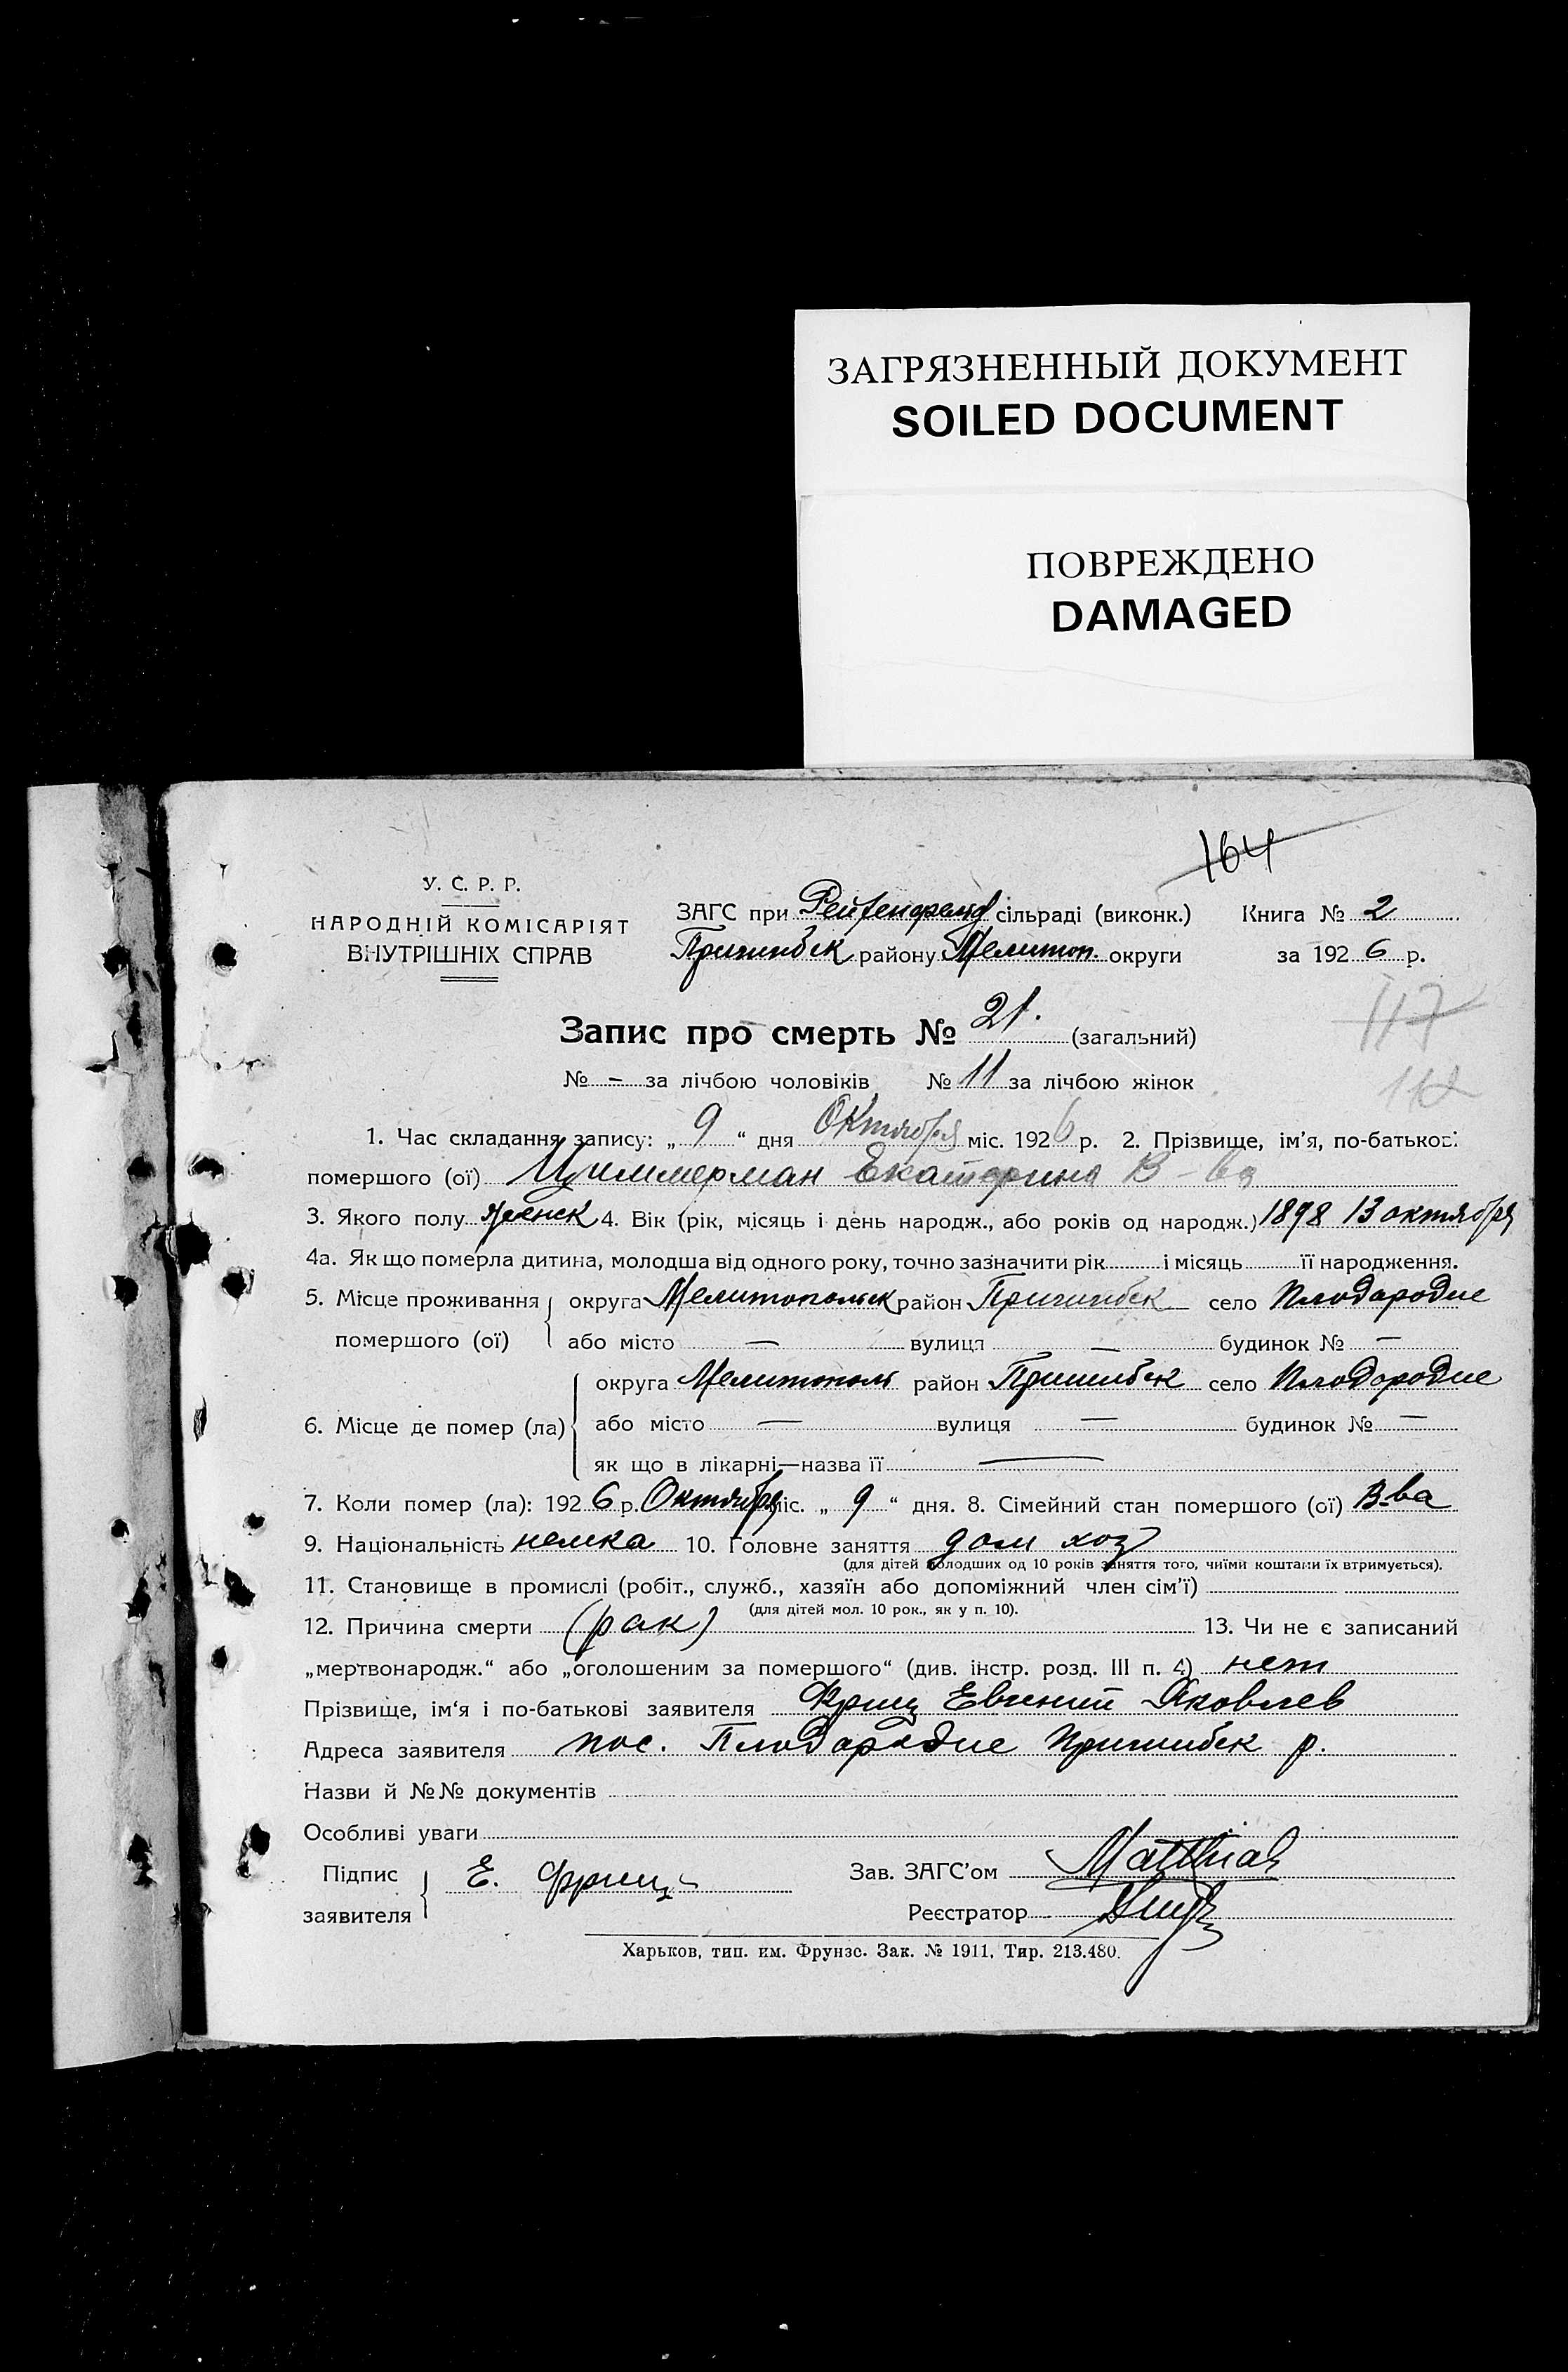 ЗАГРЯЗНЕННЫЙ ДОКУМЕНТ
SOILED DOCUMENT
ПОВРЕЖДЕНО
DAMAGED
164
У. С. Р. Р.
НАРОДНІЙ КОМІСАРІЯТ
ВНУТРІШНІХ СПРАВ
ЗАГС при сільраді (виконк.) Книга № 2
Пришибск району Мелитоп. округи за 1926 р.
117
Запис про смерть № 21. (загальний)
№ - за лічбою чоловіків № 11 за лічбою жінок
1. Час складання запису: „ 9 “ дня Октября міс. 1926 р. 2. Прізвище, ім’я, по-батькові
померлого (ої) Циммерман Екатерина В-ва
3. Якого полу женск 4. Вік (рік, місяць і день народж., або років од народж.) 1898 13 октября
4а. Як що померла дитина, молодша від одного року, точно зазначити рік і місяць її народження.
5. Місце проживання округа Мелитопольск район Пришибск село Плодородие
помершого (ої) або місто — вулиця — будинок № —
округа Мелитополь район Пришибск село Плодородие
6. Місце де помер (ла) або місто — вулиця — будинок № —
як що в лікарні—назва її —
7. Коли помер (ла): 1926 р. Октября міс. „ 9 “ дня. 8. Сімейний стан помершого (ої) В-ва
9. Національність немка 10. Головне заняття дом хоз
(для дітей молодших од 10 років заняття того, чиїми коштами їх втримується).
11. Становище в промислі (робіт., служб., хазяїн або допоміжний член сім’ї)
(для дітей мол. 10 рок., як у п. 10).
12. Причина смерти (рак) 13. Чи не є записаний
„мертвонародж.“ або „оголошеним за помершого“ (див. інстр. розд. III п. 4) нет
Прізвище, ім‘я і по-батькові заявителя Евгений Яковлев
Адреса заявителя пос. Плодородие Пришибск р.
Назви й №№ документів
Особливі уваги
Підпис
заявителя Е. Фриц
Зав. ЗАГС’ом Matthias
Реєстратор
Харьков, тип. им. Фрунзе. Зак. № 1911, Тир. 213.480.